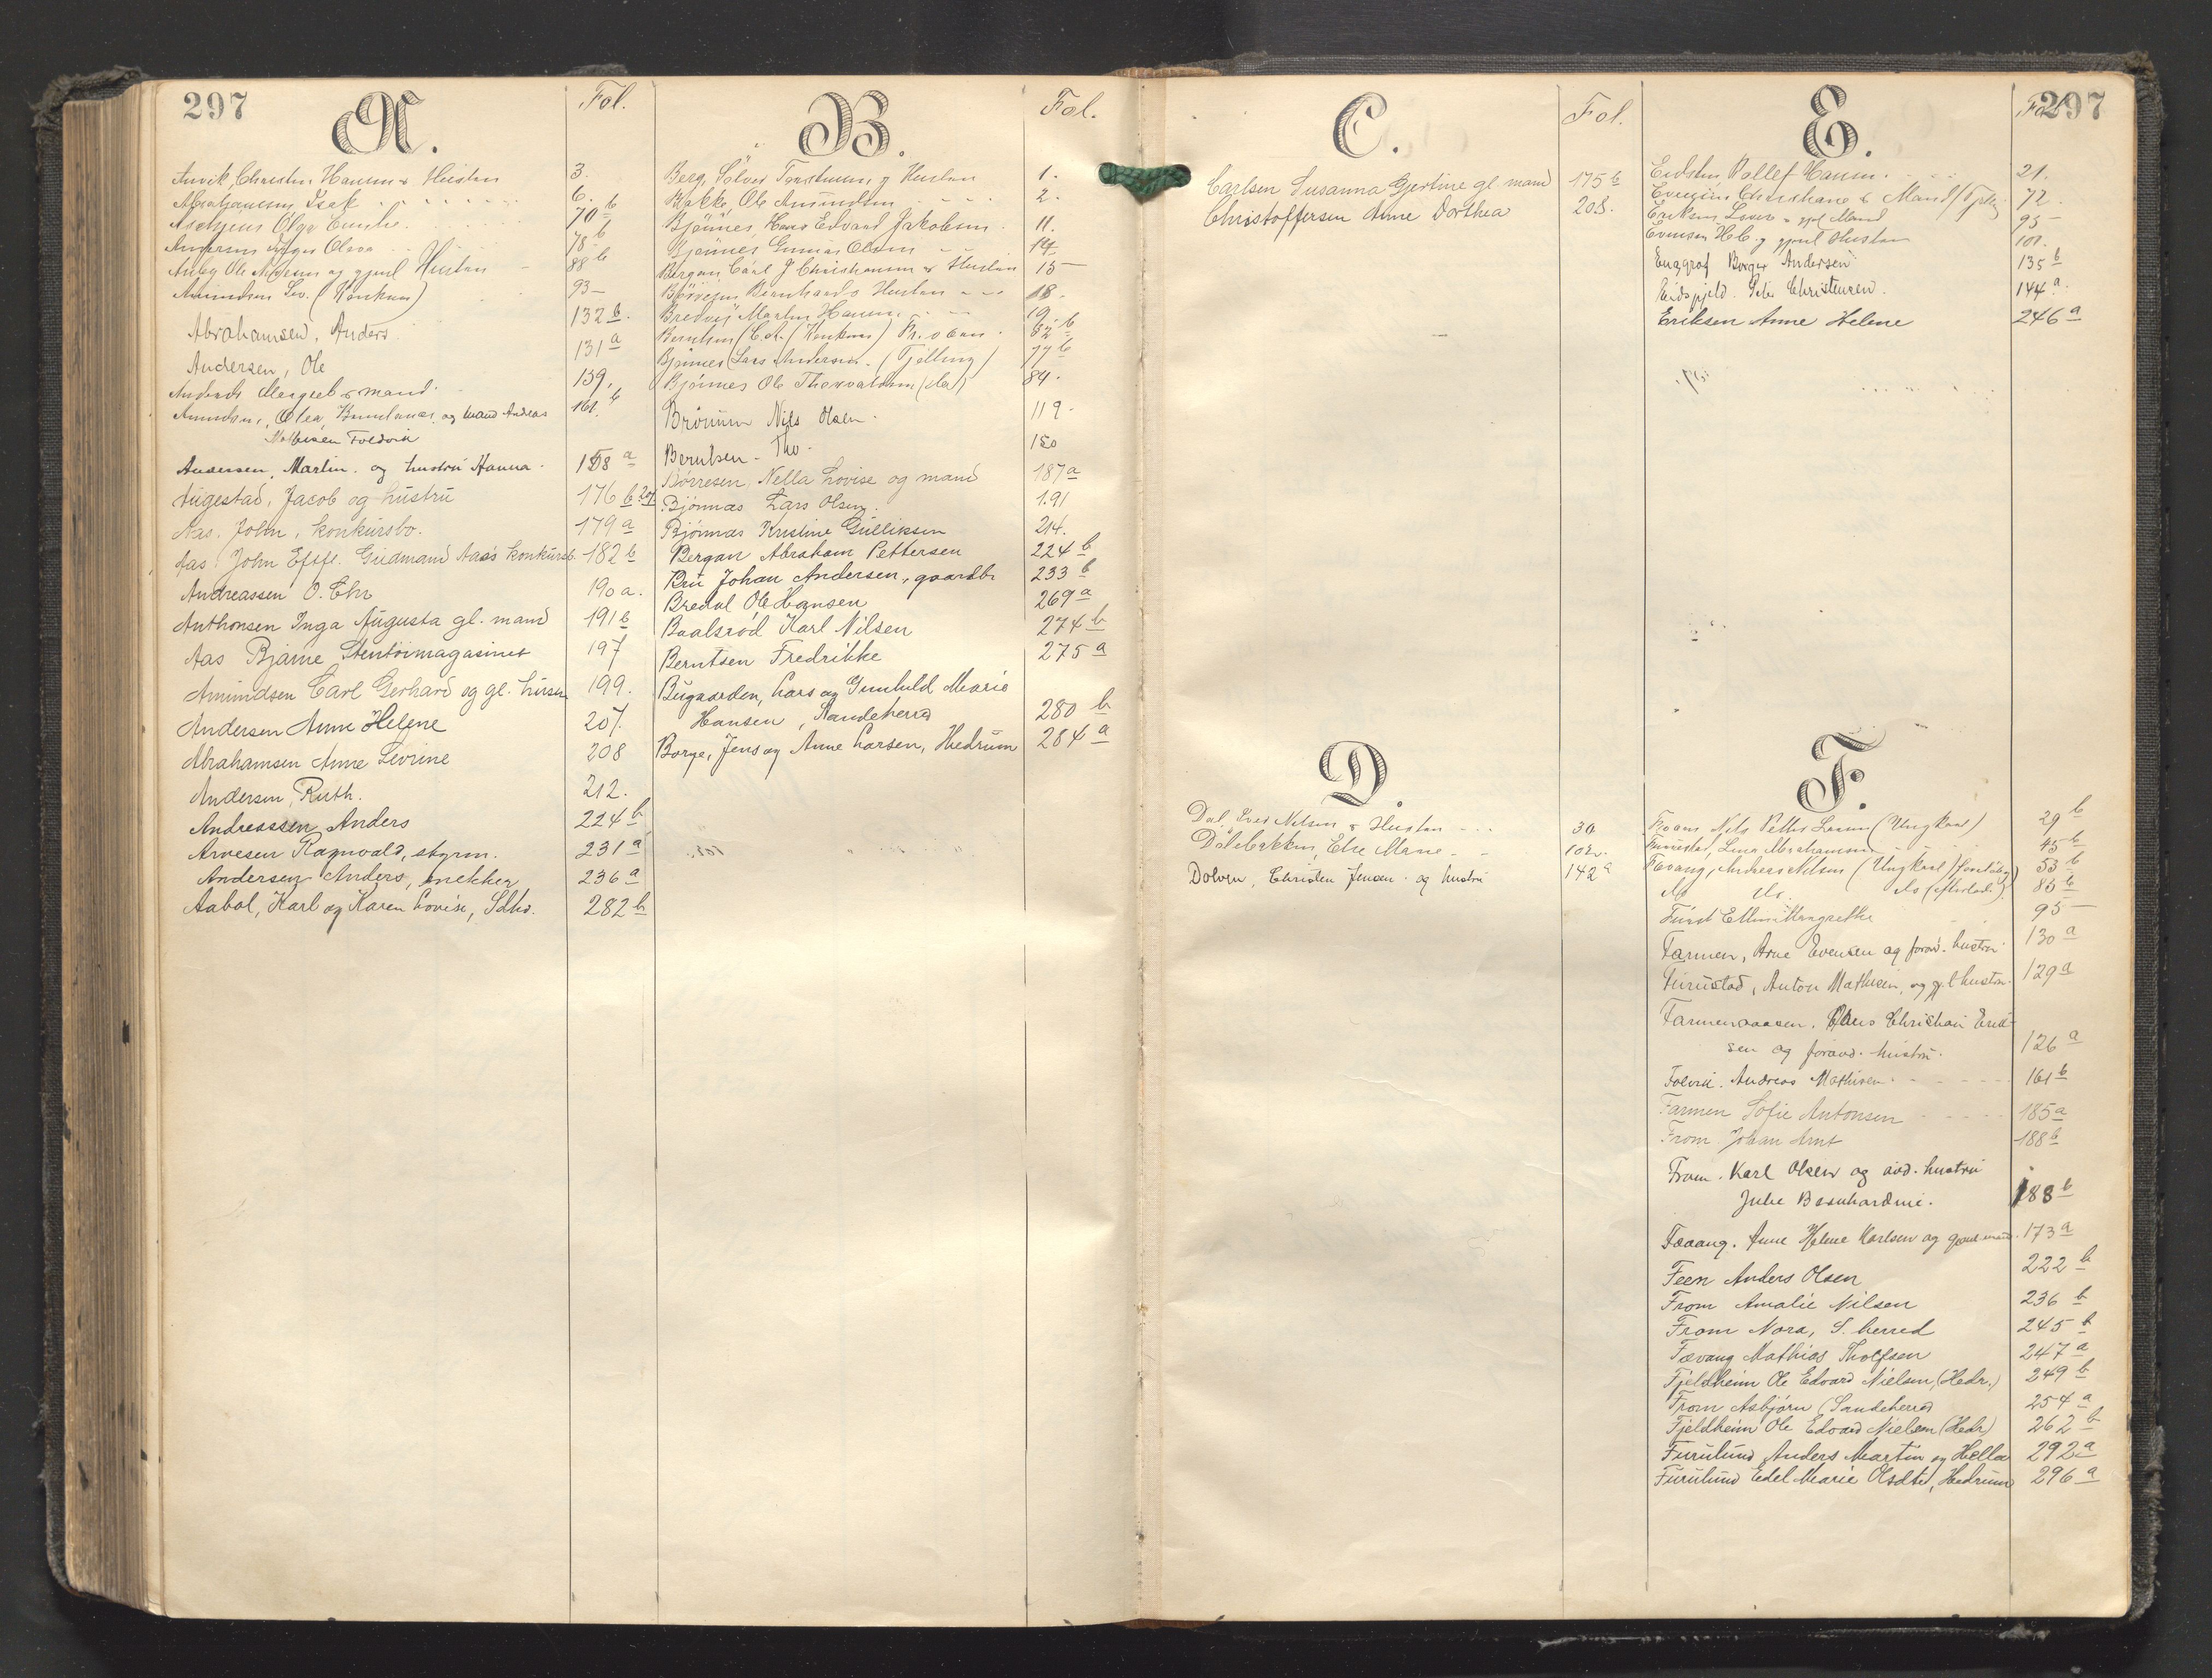 297
A.
Fol.
Anvik, Christen Hansen & Hustru 3.
Abrahamsen, Isak 6.
Olga 70 b
Olava 78 b
Ole og gjenl. Hustru 88 b
Amundsen (Konkurs) 93
Abrahamsen, Anders 132 b.
Andersen, Ole 131 a
Margret & mand 159.
Amundsen, Olea og mand Andreas 161 b
Mathisen Foldvik
Andersen, Martin. og hustru Hanna. 158 a
Augestad, Jacob og hustru 176 b 207
Aas, John, konkursbo. 179 a
Aas, John Eftfl. Gudmund Aas's konkursb. 182 b
Andreassen O. Chr 190 a.
Anthonsen Inga Augusta gl. mand 191 b
Aas Bjarne Stentöimagasinet 197
Amundsen Carl Gerhard og gl. hustru 199.
Andersen Anne Helene 207.
Abrahamsen Anne Sevrine 208
Andersen, Ruth. 212.
Andreassen Anders 224 b
Arvesen Ragnvald, styrm. 231 a
Andersen Anders, snekker 236 a
Aabol, Karl og Karen Lovise, Sdhd. 282 b
B.
Fol.
Berg, Sölver Torstensen og Hustru 1.
Bakke, Ole Amundsen 2.
Bjönnes, Hans Edvard Jakobsen 11.
Bjönnes Gunnar Olsen 14
Bergan Carl J Christiansen & Hustru 15
Bernhards Hustru 18.
Bredvej Martin Hansen 19.
Berntsen (C.A. (Konkurs) 62 b
Bjönnes Lars Andersen. (Tjölling) 77 b
Bjönnes Ole Thorvaldsen (do) 84.
Brönum Nils Olsen. 119.
Berntsen. Tho. 150
Börresen, Nella Lovise og mand 187 a
Bjönnas Lars Olsen. 191
Bjönnas Kristine Gulliksen 214.
Bergan Abraham Pettersen 224 b
Bru Johan Andersen, gaardbr 233 b
Bredal Ole Hansen 269 a
Baalsrød Karl Nilsen 274 b
Berntsen Fredrikke 275 a
Bugaarden, Lars og Gunhild Marie
Hansen, Sandeherred 280 b
Borge, Jens og Anne Larsen, Hedrum 284 a
C.
Fol.
Carlsen Susanna Gjertine gl. mand 175 b
Christoffersen Anne Dorthea 208.
D.
Dal, Iver Nilsen & Hustru 30
Dalebakken, Else Marie 102.
Dolven, Christen Jensen. og hustru 142 a
E.
Fol.
297
Eidsten Rollef Hansen. 21.
Evensen Christiane & Mand (Tjöl) 72.
Eriksen & gjl Mand 93
Evensen H.C. og gjenl Hustru 101.
Enggrav Borger Andersen 135 b
Eidsfjeld. Christensen. 144 a.
Eriksen Anne Helene 246 a
F.
Nils Petter Larsen (Ungkarl) 29 b
Furustad, Lina Abrahamsen 45 b
Fevang, Andreas Nilsen (Ungkarl) 53 b
do do. do (Afterlad.) 85 b
Margrethe 95
Farmen, Arne Evensen og forav. hustru 130 a
Furustad, Anton Mathisen, og gj. l hustru. 129 a
Farmenaaasen. Christian Erik-
sen og forav. hustru. 126 a
Foldvik. Andreas Mathisen. 161 b
Farmen Sofie Antonsen 185 a
From Johan Arnt 188 b
From. Karl Olsen og avd. hustru
Julie Bernhardine. 188 b
Fævang. Anne Helene Karlsen og gjenl. mand. 173 a
Feen Anders Olsen 222 b
From Amalie Nilsen 236 b
From Nora, S. herred 245 b
Fævang Mathias Tholfsen 247 a
Fjeldheim Ole Edvard Nielsen, (Hedr.) 249 b
From Asbjörn (Sandeherred 254 a
Fjeldheim Ole Edvard Nielsen (Hedr) 262 b
Furulund Anders Martin og Hella 292 a
Furulund Edel Marie Olsdtr, Hedrum 296 a